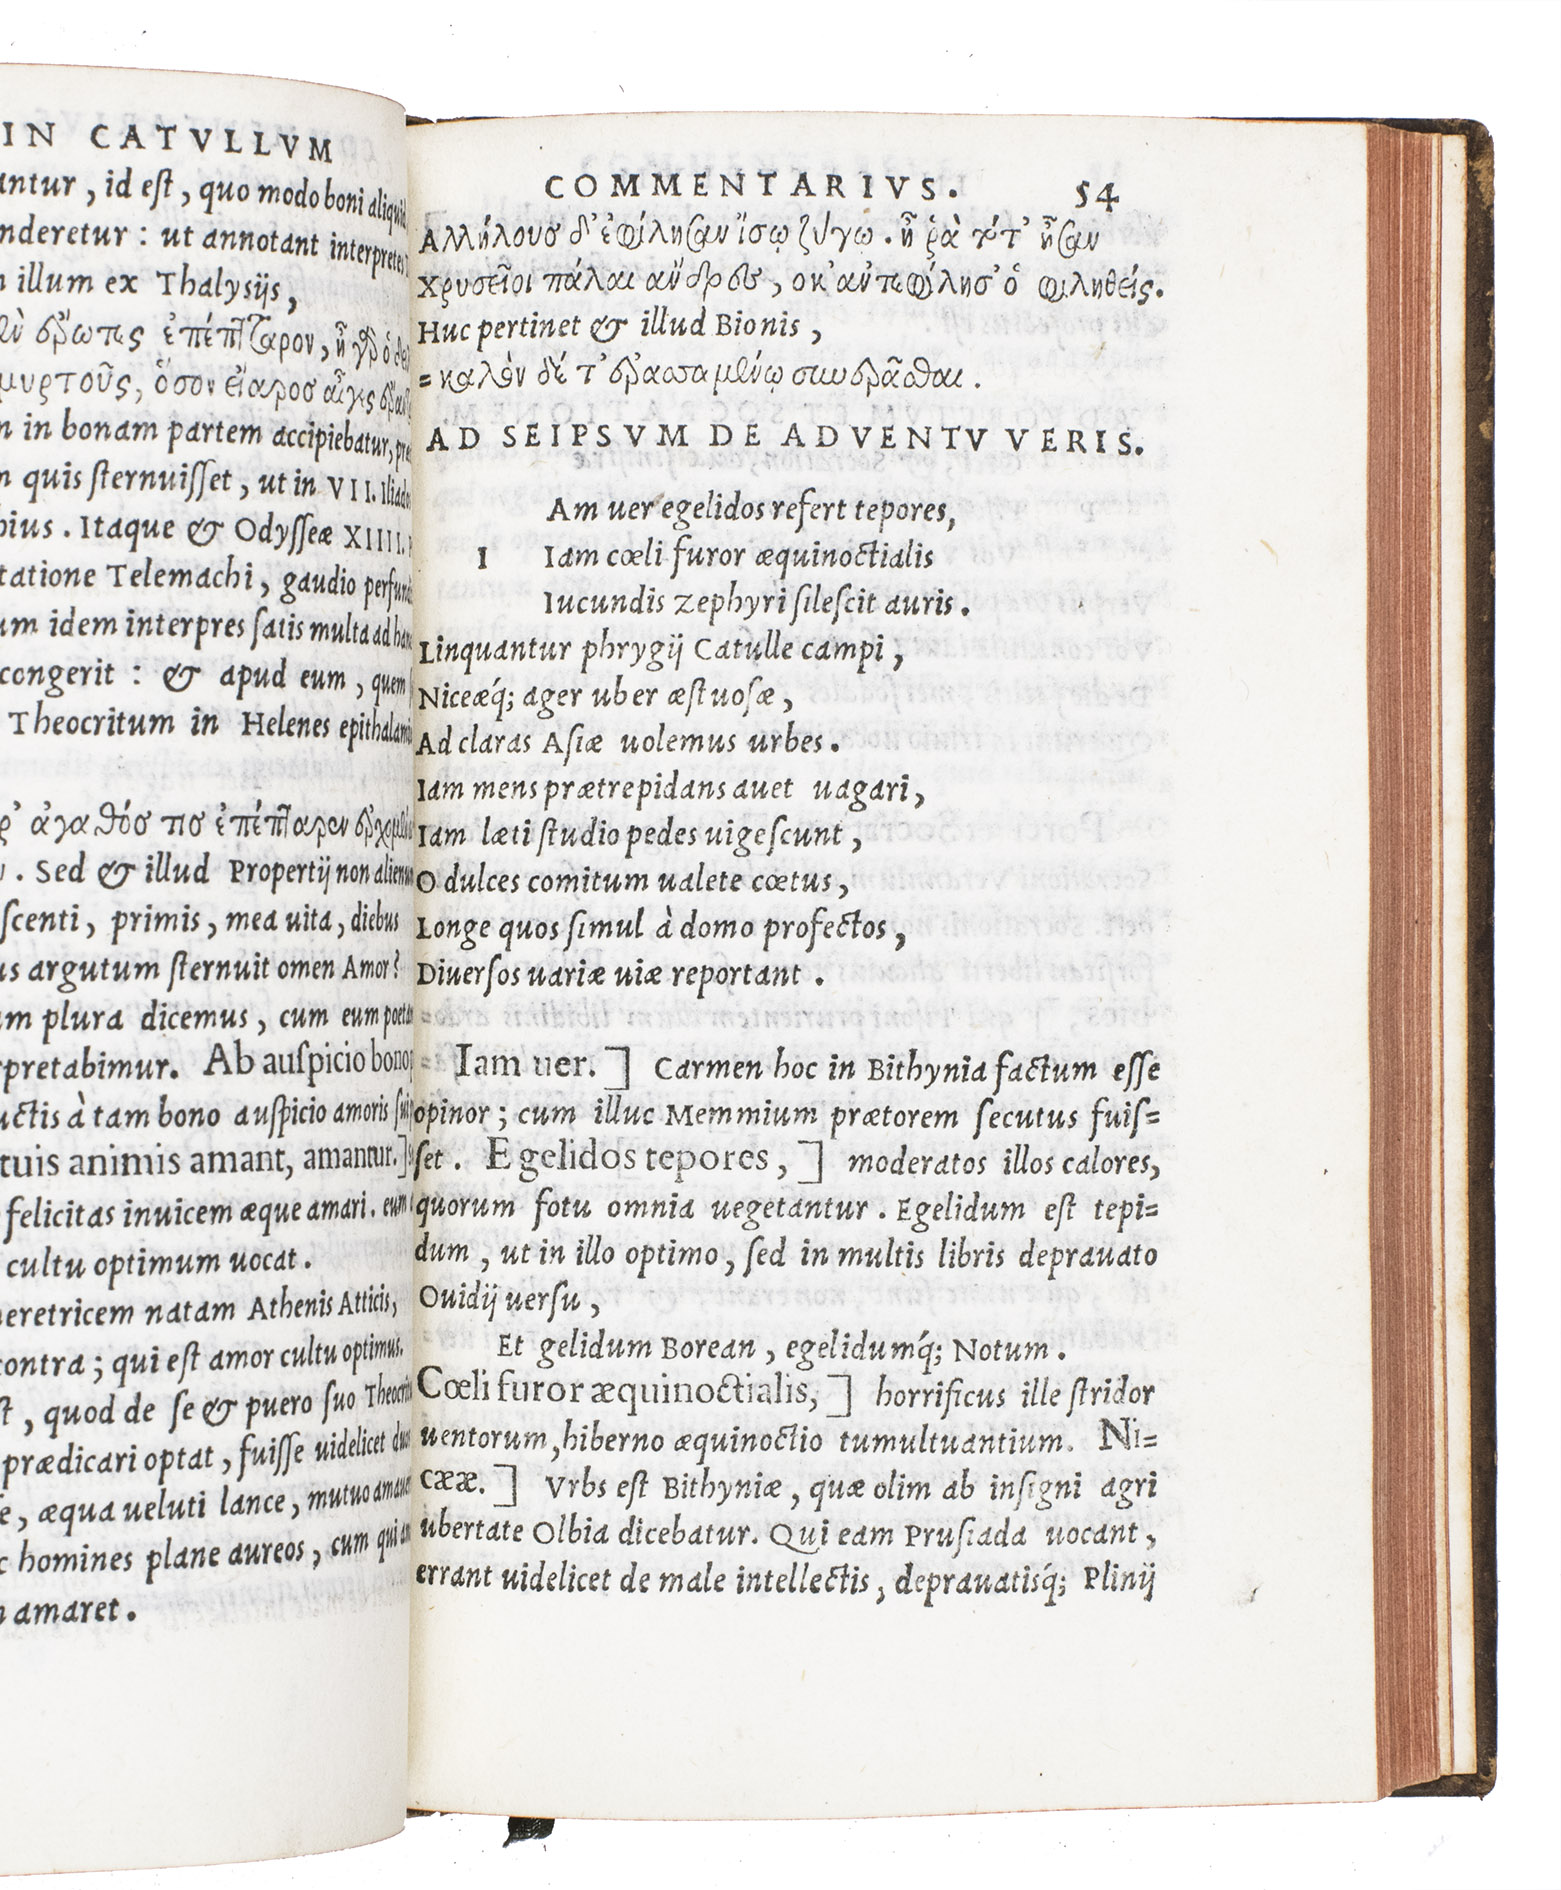 IN CATVLLVM
antur, id est, quo modo boni aliquid
nderetur: ut annotant interpretes
illum ex Thalysijs,
ἐπέπταρον, ἦ γὰρ ὁ
μυρτοῦς, ὅσον εἴαροσ αἶγες
in bonam partem accipiebatur,
quis sternuisset, ut in VII. Iliados
bius. Itaque & Odysseæ XIIII.
tatione Telemachi, gaudio
um idem interpres satis multa ad
congerit: & apud eum, quem
Theocritum in Helenes
ἀγαθόσ τισ ἐπέπταρεν
. Sed & illud Propertij non
scenti, primis, mea uita, diebus
us argutum sternuit omen Amor?
m plura dicemus, cum eum
rpretabimur. Ab auspicio bono
uctis à tam bono auspicio amoris
tuis animis amant, amantur.]
felicitas inuicem æque amari. eum
cultu optimum uocat.
eretricem natam Athenis Atticis,
contra; qui est amor cultu optimus.
st, quod de se & puero suo
prædicari optat, fuisse uidelicet
e, æqua ueluti lance, mutuo
c homines plane aureos, cum qui
amaret.
COMMENTARIVS. 54
Αλλήλουσ δ' ἐφίλησαν ἴσῳ ζυγῳ. ἦ ῥὰ τότ' ἦσαν
Χρυσεῖοι πάλαι ἄνδρεσ, οκ' ἀντεφίλησ' ὁ φιληθείς.
Huc pertinet & illud Bionis,
= καλὸν δέ τ' ἐραασαμένῳ συνερᾶσθαι.
AD SEIPSVM DE ADVENTV VERIS.
Am uer egelidos refert tepores,
I Iam cœli furor æquinoctialis
Iucundis zephyri silescit auris.
Linquantur phrygij Catulle campi,
Niceæq́; ager uber æstuosæ,
Ad claras Asiæ uolemus urbes.
Iam mens prætrepidans auet uagari,
Iam læti studio pedes uigescunt,
O dulces comitum ualete cœtus,
Longe quos simul à domo profectos,
Diuersos uariæ uiæ reportant.
Iam uer.] Carmen hoc in Bithynia factum esse
opinor; cum illuc Memmium prætorem secutus fuis=
set. Egelidos tepores,] moderatos illos calores,
quorum fotu omnia uegetantur. Egelidum est tepi=
dum, ut in illo optimo, sed in multis libris deprauato
Ouidij uersu,
Et gelidum Borean, egelidumq́; Notum.
Cœli furor æquinoctialis,] horrificus ille stridor
uentorum, hiberno æquinoctio tumultuantium. Ni=
cææ.] Vrbs est Bithyniæ, quæ olim ab insigni agri
ubertate Olbia dicebatur. Qui eam Prusiada uocant,
errant uidelicet de male intellectis, deprauatisq́; Plinij